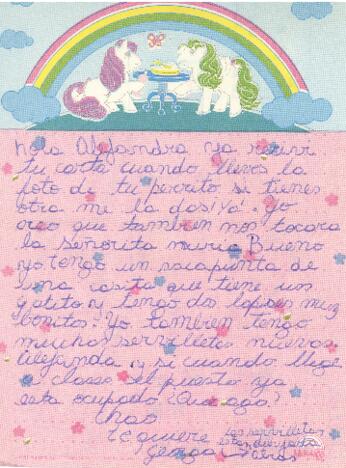 hola Alejandra ya recivi
tu carta cuando lleves la
foto de tu perrito si tienes
otra me la das! Ya! Yo
creo que tambien nos tocara
la Señorita nuria Bueno
yo tengo un sacapunta de
una casita que tiene un
gatito y tengo dos lapises muy
bonitos! Yo tambien tengo
muchas servilletas nuevas
alejanda y si cuando llege
a clase el puesto ya
esta ocupado ¿Que ago?
chao
te quiere
las servilletas